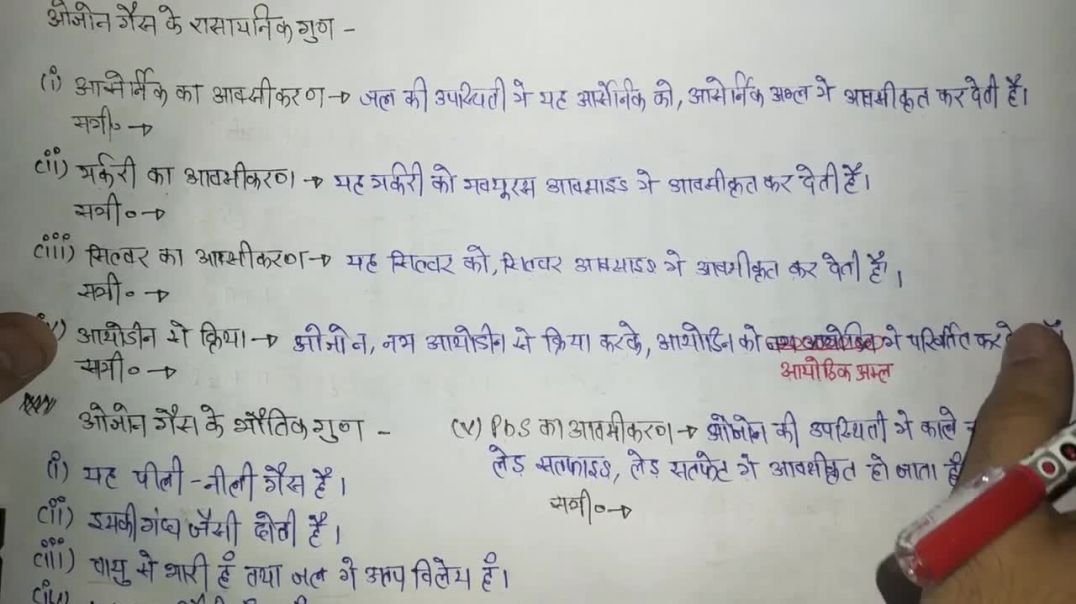 ओजोन गैस के रासायनिक गुण -
(i) आर्सेनिक का आक्सीकरण → जल की उपस्थिती मे यह आर्सेनिक को, आर्सेनिक अम्ल मे आक्सीकृत कर देती है।
समी० →
(ii) मर्करी का आक्सीकरण → यह मर्करी को मरक्यूरस आक्साइड मे आक्सीकृत कर देती है।
समी० →
(iii) सिल्वर का आक्सीकरण → यह सिल्वर को, सिल्वर आक्साइड मे आक्सीकृत कर देती है।
समी० →
आयोडीन से क्रिया → ओजोन, नम आयोडीन से क्रिया करके, आयोडिन को मे परिवर्तित कर
आयोडिक अम्ल
समी० →
ओजोन गैस के भौतिक गुण -
(i) यह पीली-नीली गैस है।
(ii) इसकी गंध जैसी होती है।
(iii) वायु से भारी है तथा जल मे अल्प विलेय है।
(iv)
(v) PbS का आक्सीकरण → ओजोन की उपस्थिती मे काले
लेड सल्फाइड, लेड सल्फेट मे आक्सीकृत हो जाता है
समी० →